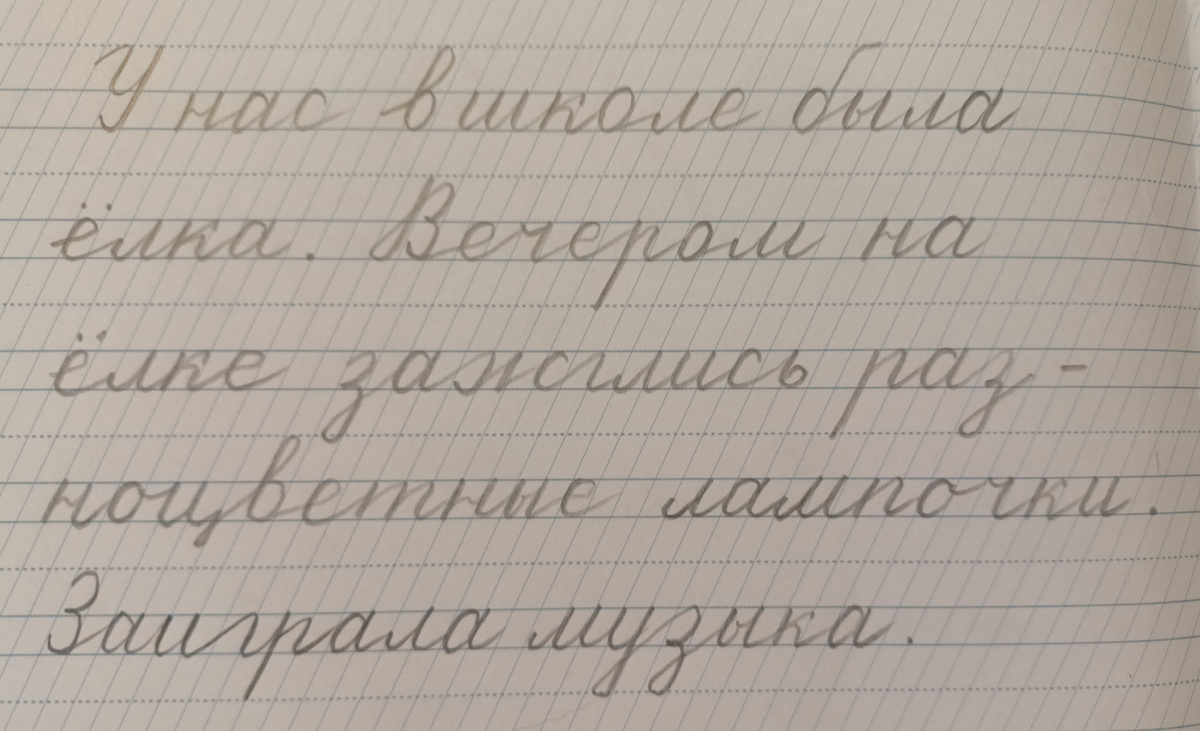 У нас в школе была
ёлка. Вечером на
ёлке зажглись раз-
ноцветные лампочки.
Заиграла музыка.